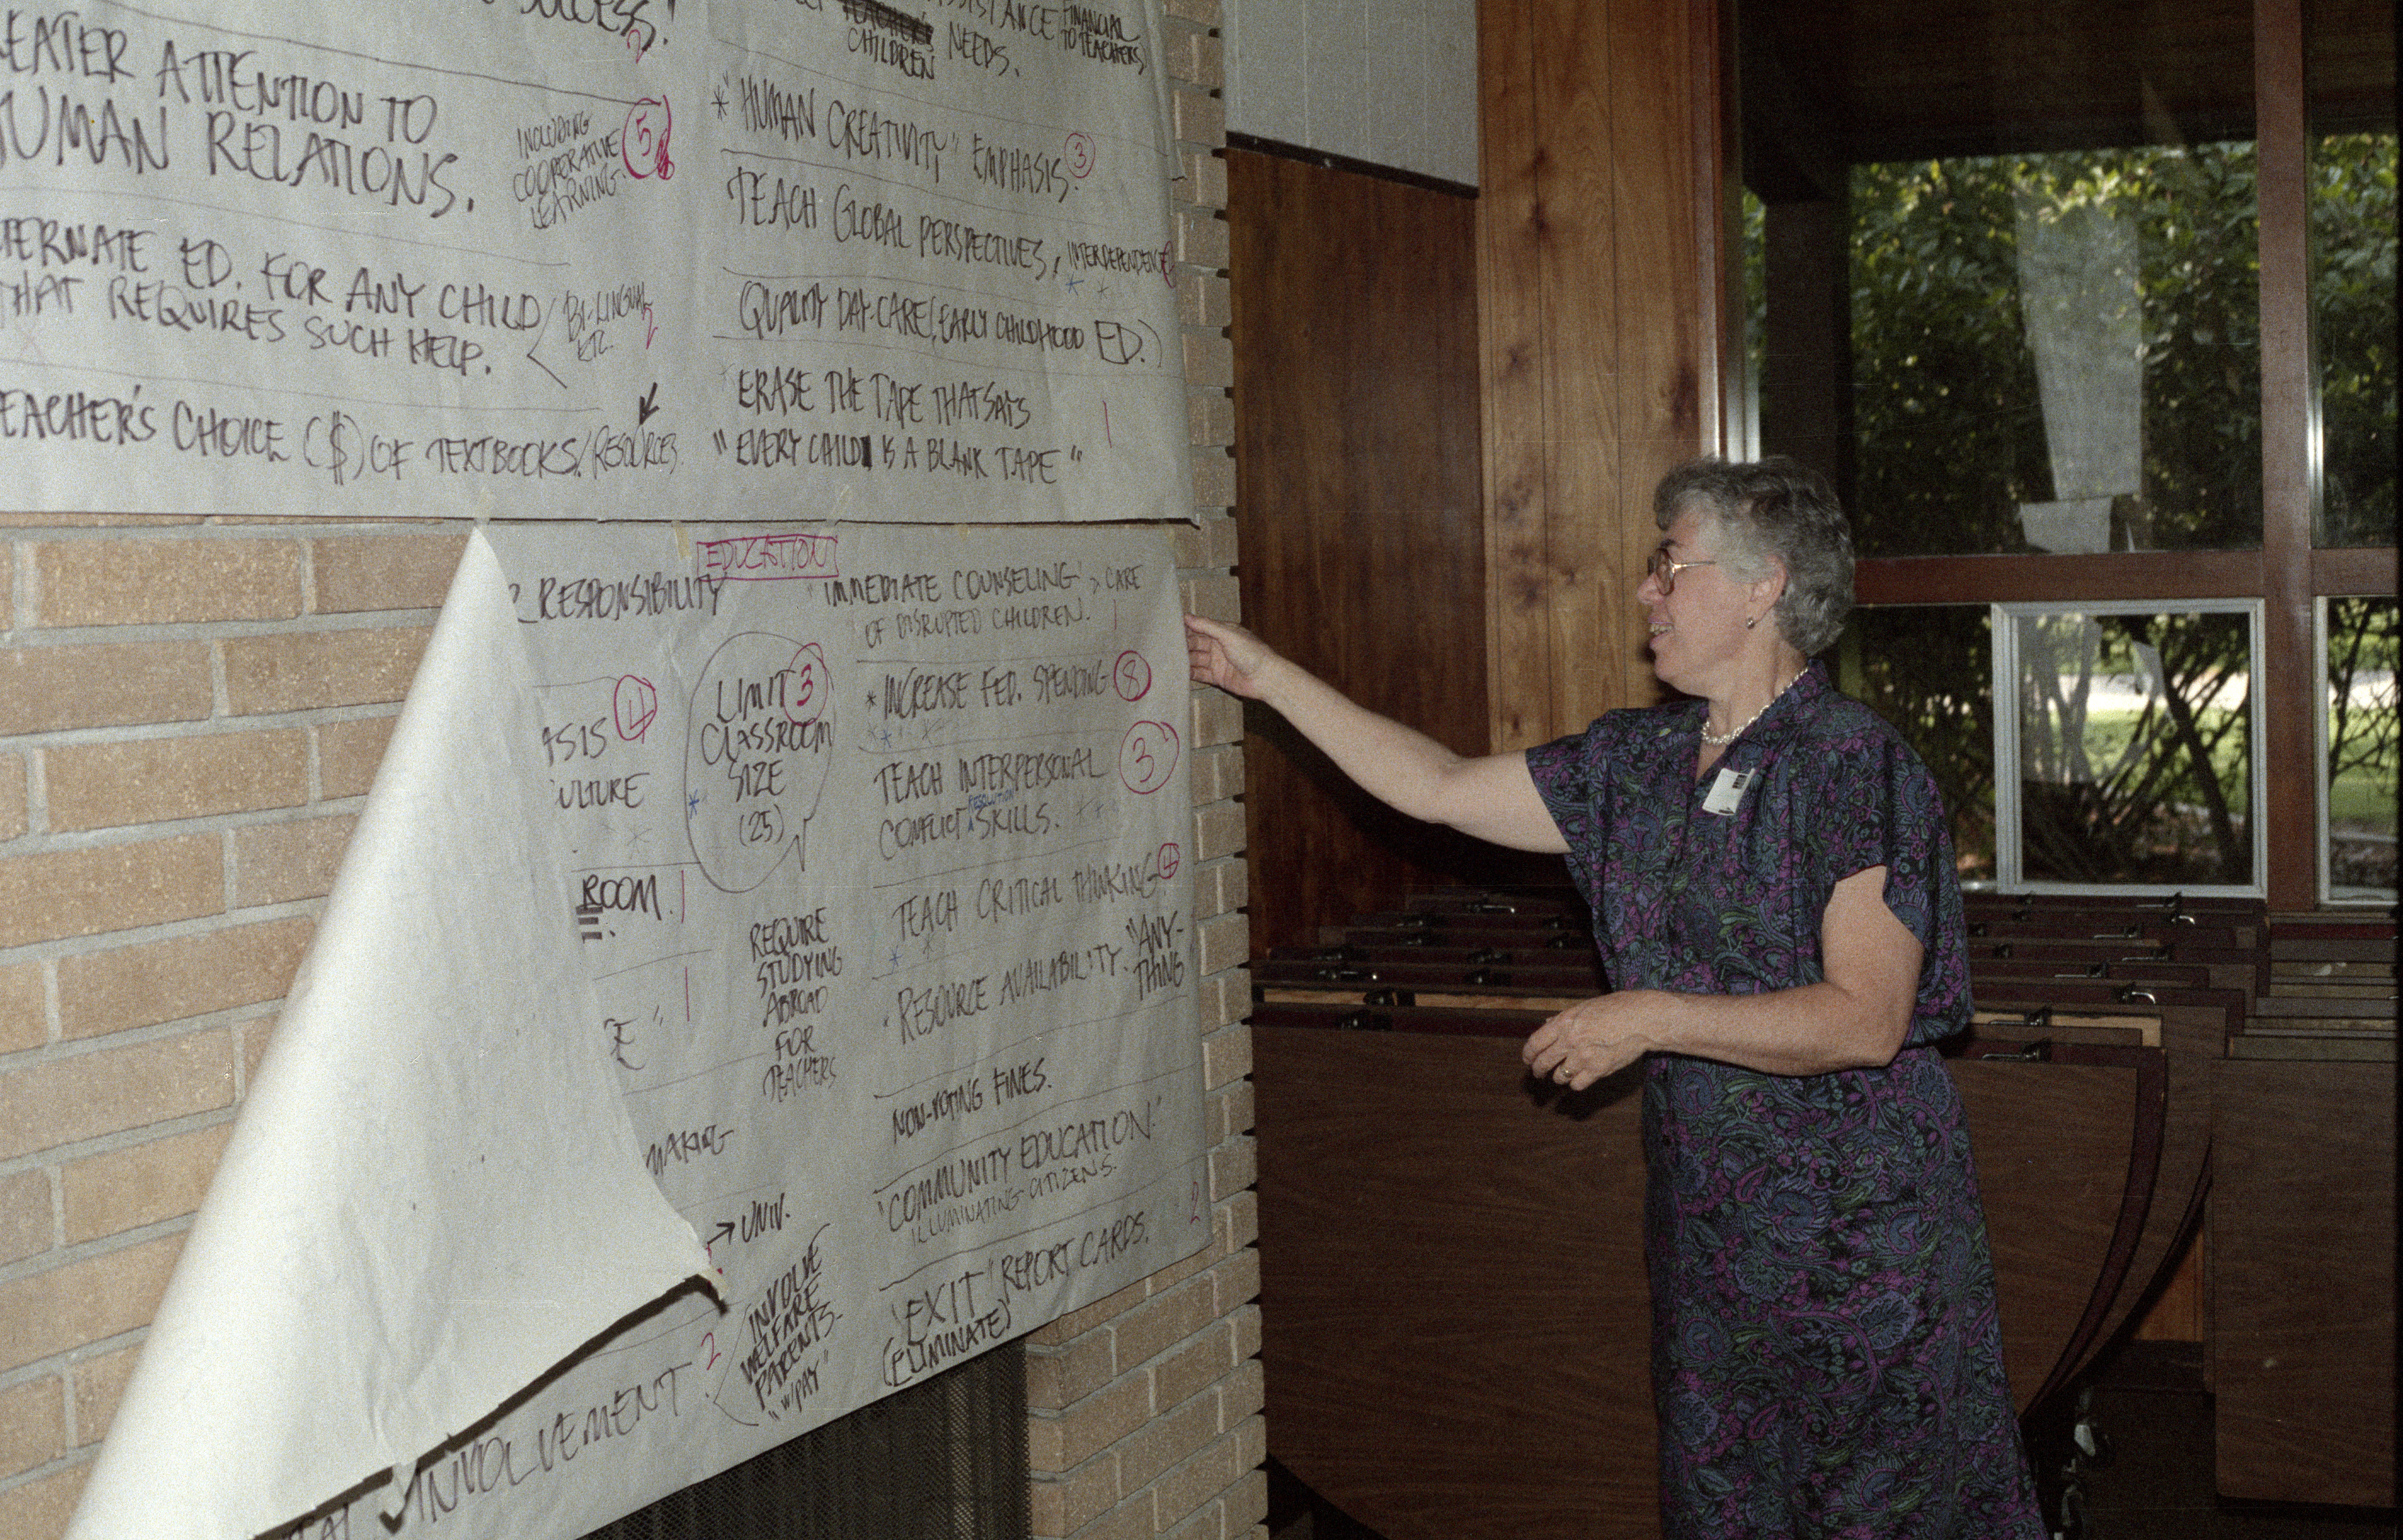 SUCCESS!
2
EATER ATTENTION TO
HUMAN RELATIONS.
INCLUDING
COOPERATIVE
LEARNING.
5
TERNATE ED. FOR ANY CHILD
THAT REQUIRES SUCH HELP.
BI-LINGUAL
ETC.
2
EACHER'S CHOICE ($) OF TEXTBOOKS/RESOURCES
ASSISTANCE FINANCIAL
TO TEACHERS
CHILDREN NEEDS.
* "HUMAN CREATIVITY" EMPHASIS. 3
TEACH GLOBAL PERSPECTIVES, INTERDEPENDENCE
* *
QUALITY DAY-CARE (EARLY CHILDHOOD ED.)
ERASE THE TAPE THAT SAYS
"EVERY CHILD IS A BLANK TAPE"
1
EDUCATION
RESPONSIBILITY
4
ASIS
ULTURE
ROOM. 1
E" 1
MAKING
→ UNIV.
INVOLVEMENT
2
INVOLVE
WELFARE
PARENTS-
"W/PAY"
LIMIT 3
CLASSROOM
SIZE
(25)
*
REQUIRE
STUDYING
ABROAD
FOR
TEACHERS
"IMMEDIATE COUNSELING" > CARE
OF DISRUPTED CHILDREN. 1
* INCREASE FED. SPENDING 8
TEACH INTERPERSONAL 3
CONFLICT RESOLUTION SKILLS.
TEACH CRITICAL THINKING. 4
* *
RESOURCE AVAILABILITY. "ANY-
THING
NON-VOTING FINES.
"COMMUNITY EDUCATION."
ILLUMINATING CITIZENS.
2
"EXIT" REPORT CARDS.
(ELIMINATE)